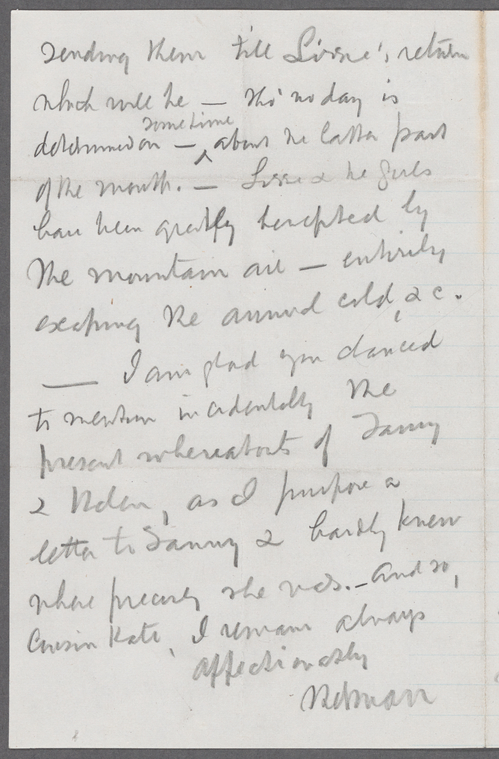 sending them till Lizzie's return
which will be — tho' no day is
determined on — sometime about the latter part
of the month. — Lizzie & the girls
have been greatly benefited by
the mountain air — entirely
escaping the annual cold, &c.
— I am glad you chanced
to mention incidentally the
present whereabouts of Fanny
& Helen, as I purpose a
letter to Fanny & hardly knew
where precisely she was. — And so,
Cousin Kate, I remain always
affectionately
HMelville